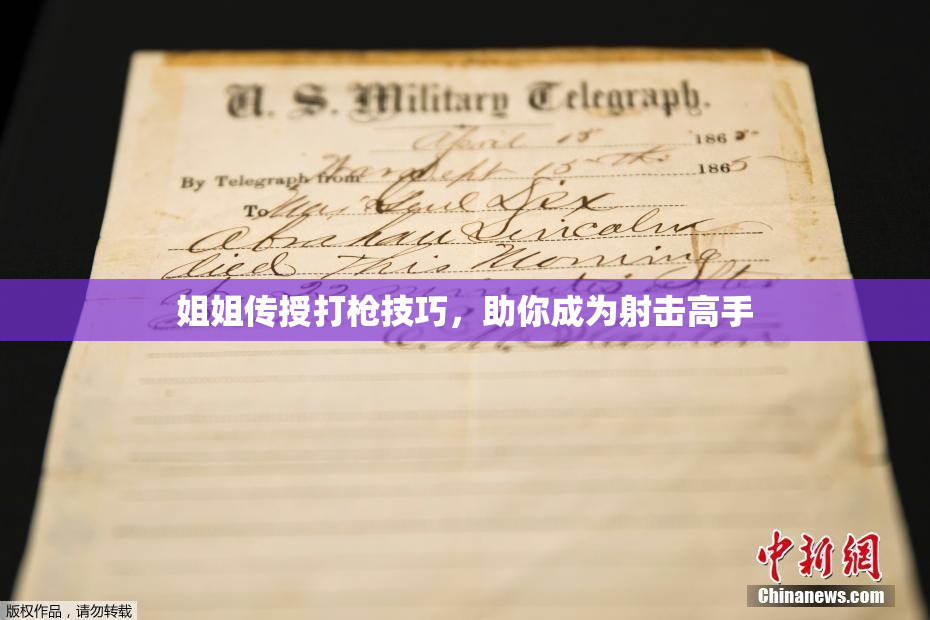 U. S. Military Telegraph.
April 15 1865
By Telegraph from War Dept 15th 1865
To Maj Genl Dix
Abraham Lincoln
died This Morning
at 22 minutes after
姐姐传授打枪技巧，助你成为射击高手
E. M. Stanton
中新網
Chinanews.com
版权作品，请勿转载